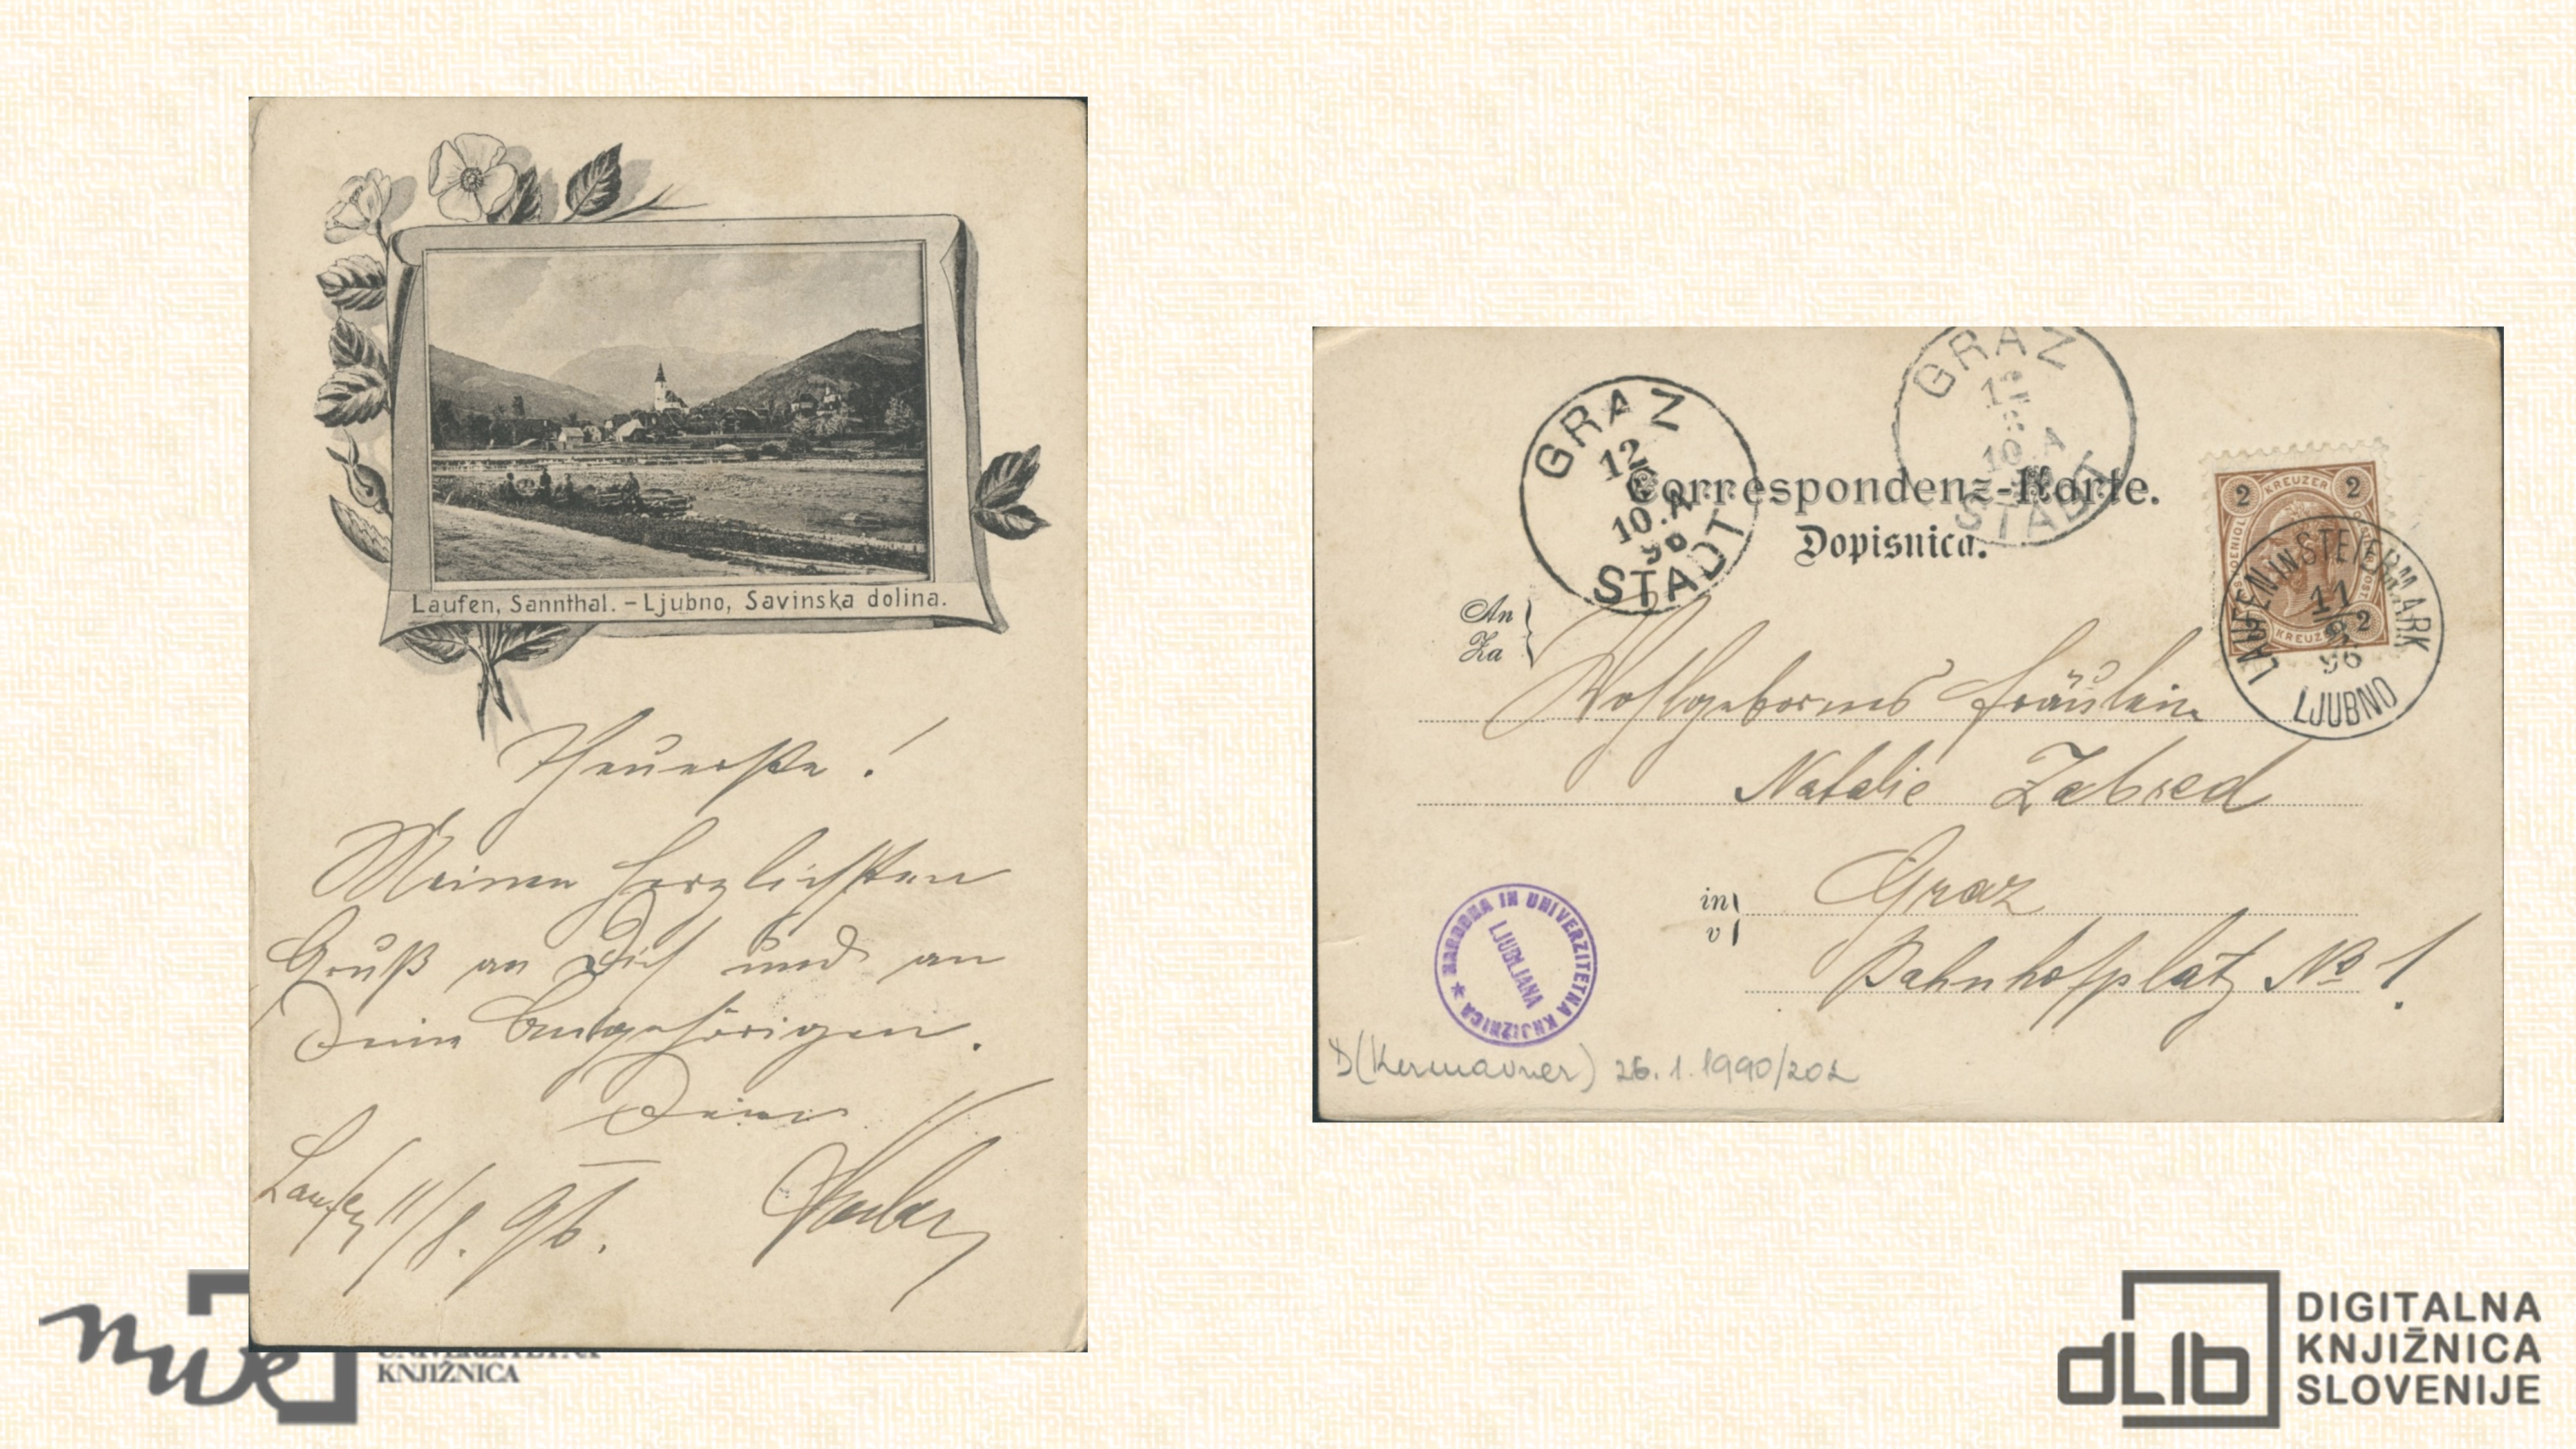 Laufen, Sannthal. – Ljubno, Savinska dolina.
Theuerste !
Meinen herzlichsten
Gruß an Dich und an
Deine Angehörigen.
Deine
Laufen 11/8. 96.
GRAZ
12
8
10.A
96
STADT
GRAZ
12
8
10.A
STADT
Correspondenz-Karte.
Dopisnica.
2 KREUZER 2
KREUZER 2
LAUFEN IN STEIERMARK
11
8
96
LJUBNO
An
Za
Wohlgebornes Fräulein
Natalie Zabred
in
v
Graz
Bahnhofplatz No 1.
NARODNA IN UNIVERZITETNA KNJIŽNICA
LJUBLJANA
D(Kermavner) 26.1.1990/202
nuk
UNIVERZITETNA
KNJIŽNICA
dLib
DIGITALNA
KNJIŽNICA
SLOVENIJE